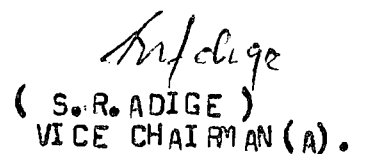 ( S.R. ADIGE )
VICE CHAIRMAN(A).